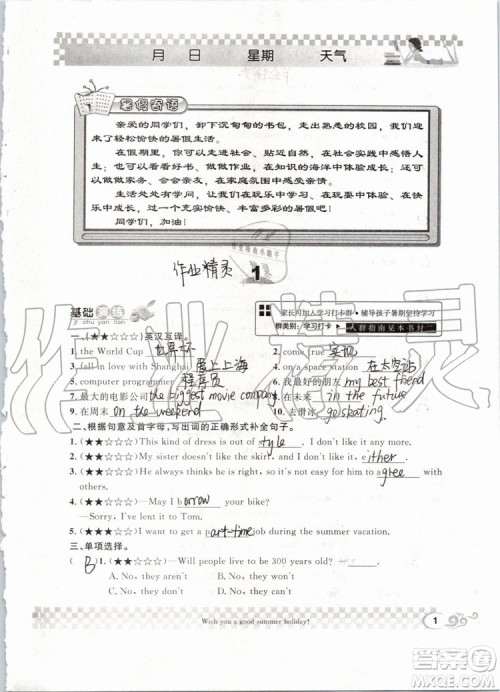 月 日 星期 天气
暑假寄语
亲爱的同学们，卸下沉甸甸的书包，走出熟悉的校园，我们迎来了轻松愉快的暑假生活。
在假期里，你可以走进社会、贴近自然，在社会实践中感悟人生；也可以做做作业，看看好书，在知识的海洋中体验成长；还可以做做家务、会会亲友，在家庭氛围中感受亲情。
生活处处有学习，生活处处有快乐，在玩乐中学习、在玩耍中体验、在快乐中成长，过一个充实愉快、丰富多彩的暑假生活！
同学们，加油！
作业精灵
1
基础演练
ji chu yan lian
家长可加入学习打卡群·辅导孩子暑期坚持学习
群类别：学习打卡 入群指南见本书封二
一、(★★☆☆☆)英汉互译。
1. the World Cup 世界杯
2. come true 实现
3. fall in love with Shanghai 爱上上海
4. on a space station 在太空站
5. computer programmer 程序员
6. 我最好的朋友 my best friend
7. 最大的电影公司 the biggest movie company
8. 在未来 in the future
9. 在周末 on the weekend
10. 去滑冰 go skating
二、根据句意及首字母，写出词的正确形式补全句子。
1. (★★☆☆☆)This kind of dress is out of style. I don't like it any more.
2. (★★☆☆☆)My sister doesn't like the skirt. I don't like it, either.
3. (★★☆☆☆)He always thinks he is right, so it's not easy for him to agree with others.
4. (★★☆☆☆)—May I borrow your bike?
—Sorry, I've lent it to Tom.
5. (★★☆☆☆)I want to get a part-time job during the summer vacation.
三、单项选择。
( B )1. (★★☆☆☆)—Will people live to be 300 years old?
—
A. No, they aren't B. No, they won't
C. No, they don't D. No, they can't
Wish you a good summer holiday!
1
作业精灵